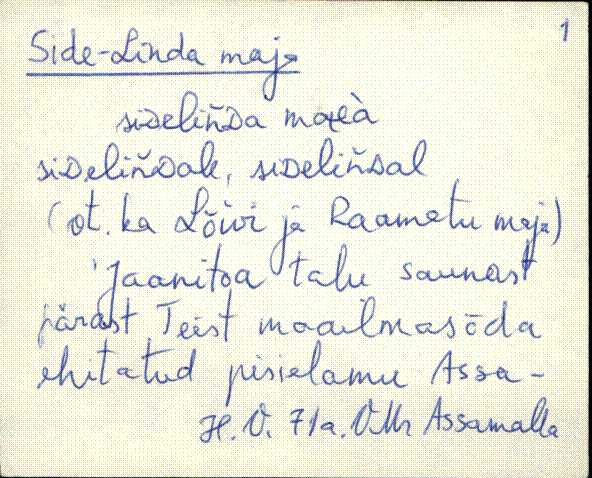 1
Side-Linda maja
siᴅeliňᴅa majeà
siᴅeliňᴅak, siᴅeliňᴅal
(vt. ka Lõivi ja Raamatu maja)
Jaanitoa talu saunast
pärast Teist maailmasõda
ehitatud pisielamu Assa-
H. V. 71a. VMr Assamalla